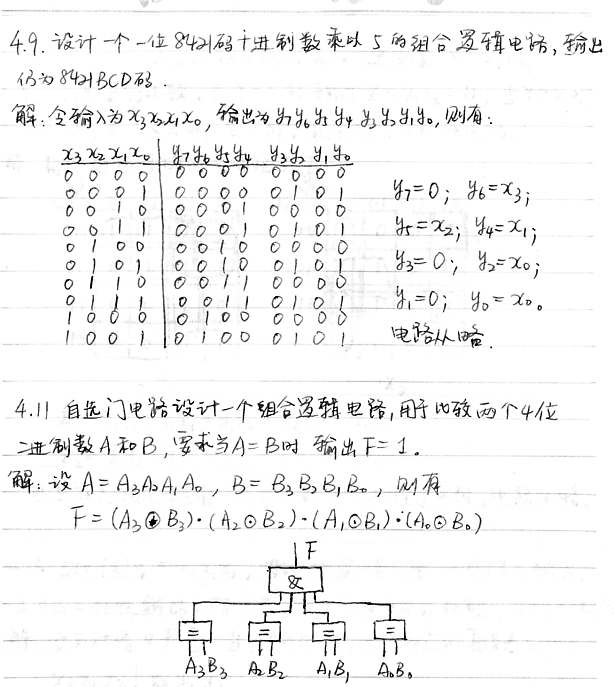 4.9. 设计一个一位8421码十进制数乘以5的组合逻辑电路,输出
仍为8421BCD码.
解:令输入为x₃x₂x₁x₀,输出为y₇y₆y₅y₄ y₃y₂y₁y₀,则有:
x₃ x₂ x₁ x₀ y₇ y₆ y₅ y₄ y₃ y₂ y₁ y₀
0 0 0 0 0 0 0 0 0 0 0 0
0 0 0 1 0 0 0 0 0 1 0 1
0 0 1 0 0 0 0 1 0 0 0 0
0 0 1 1 0 0 0 1 0 1 0 1
0 1 0 0 0 0 1 0 0 0 0 0
0 1 0 1 0 0 1 0 0 1 0 1
0 1 1 0 0 0 1 1 0 0 0 0
0 1 1 1 0 0 1 1 0 1 0 1
1 0 0 0 0 1 0 0 0 0 0 0
1 0 0 1 0 1 0 0 0 1 0 1
y₇=0; y₆=x₃;
y₅=x₂; y₄=x₁;
y₃=0; y₂=x₀;
y₁=0; y₀=x₀。
电路从略.
4.11 自选门电路设计一个组合逻辑电路,用于比较两个4位
二进制数A和B,要求当A=B时 输出F=1.
解:设 A=A₃A₂A₁A₀, B=B₃B₂B₁B₀, 则有
F=(A₃⊙B₃)·(A₂⊙B₂)·(A₁⊙B₁)·(A₀⊙B₀)
F
&
= = = =
A₃B₃ A₂B₂ A₁B₁ A₀B₀